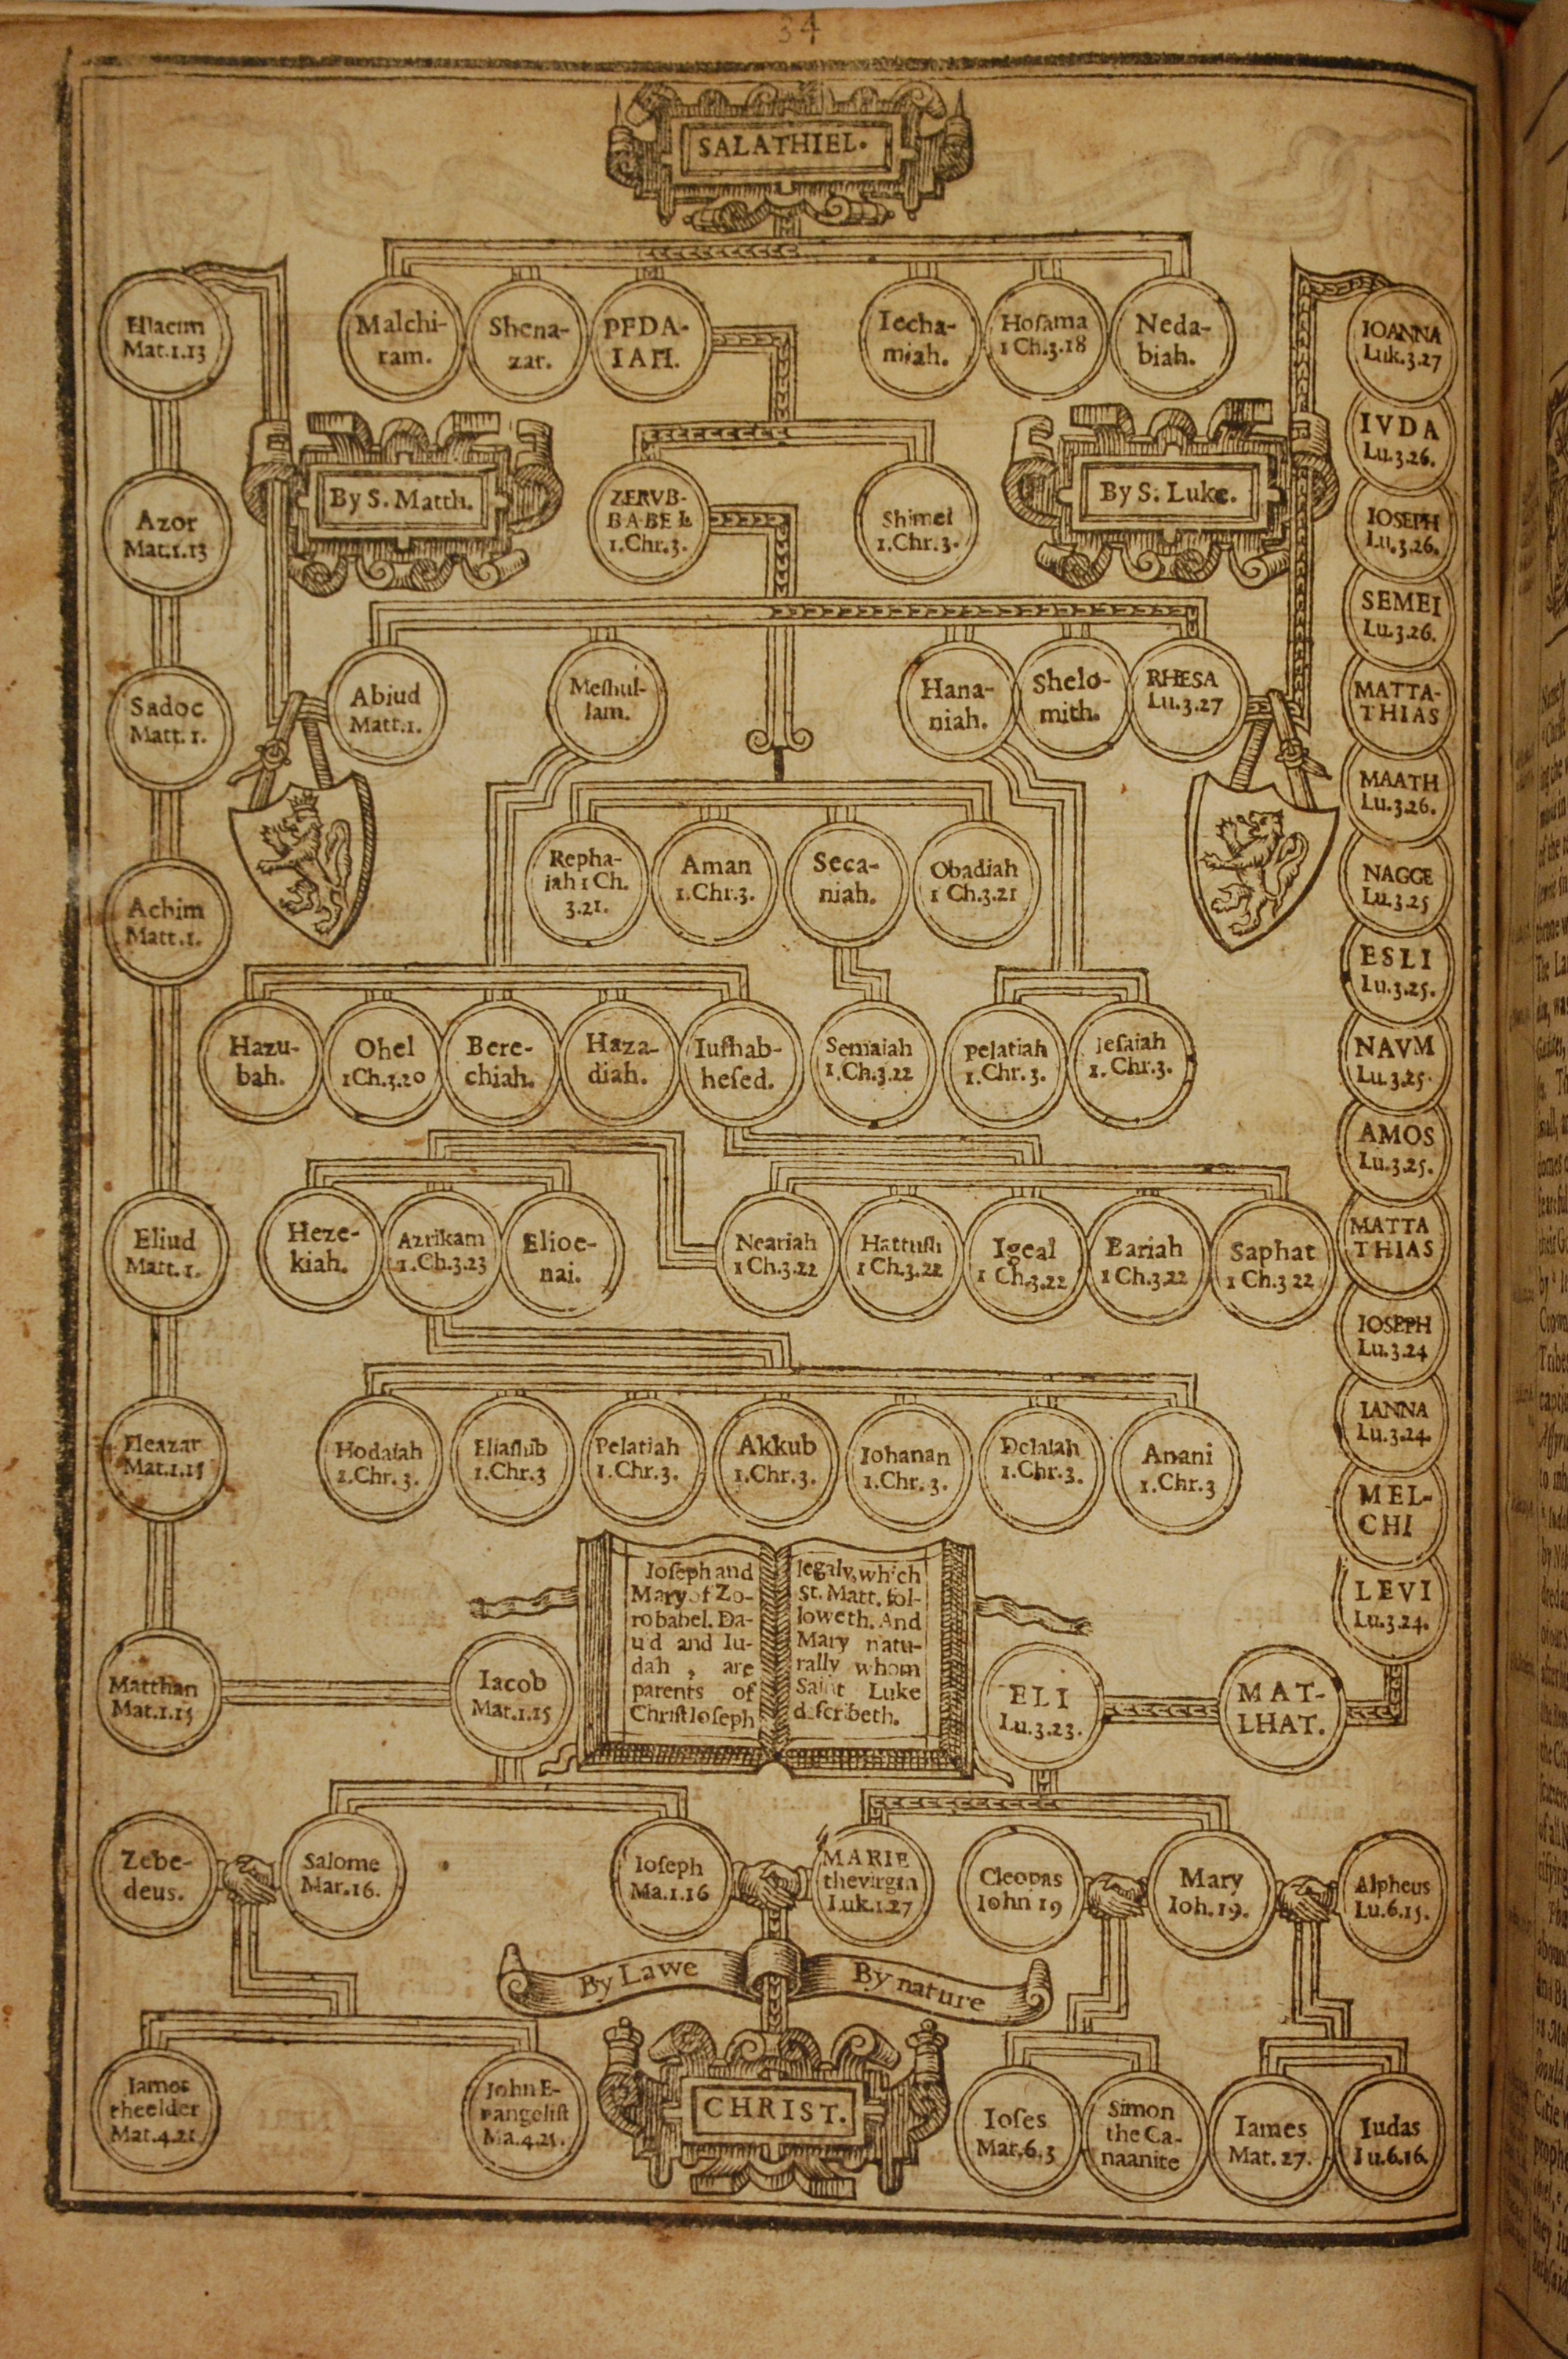 34
SALATHIEL.
Eliacim
Mat.1.13
Malchi-
ram.
Shena-
zar.
PEDA-
IAH.
Iecha-
miah.
Hoſama
1 Ch.3.18
Neda-
biah.
IOANNA
Luk.3.27
IVDA
Lu.3.26.
By S. Matth.
ZERVB-
BABEL
1.Chr.3.
Shimei
1.Chr.3.
By S. Luke.
Azor
Mat.1.13
IOSEPH
Lu.3.26.
SEMEI
Lu.3.26.
Sadoc
Matt.1.
Abiud
Matt.1.
Meſhul-
lam.
Hana-
niah.
Shelo-
mith.
RHESA
Lu.3.27
MATTA-
THIAS
MAATH
Lu.3.26.
Achim
Matt.1.
Repha-
iah 1 Ch.
3.21.
Aman
1.Chr.3.
Seca-
niah.
Obadiah
1 Ch.3.21
NAGGE
Lu.3.25
ESLI
Lu.3.25.
Hazu-
bah.
Ohel
1Ch.3.20
Bere-
chiah.
Haza-
diah.
Iuſhab-
heſed.
Semaiah
1.Ch.3.22
Pelatiah
1.Chr.3.
Ieſaiah
1.Chr.3.
NAVM
Lu.3.25.
AMOS
Lu.3.25.
Eliud
Matt.1.
Heze-
kiah.
Azrikam
1.Ch.3.23
Elioe-
nai.
Neariah
1 Ch.3.22
Hattuſh
1 Ch.3.22
Igeal
1 Ch.3.22
Bariah
1 Ch.3.22
Saphat
1 Ch.3 22
MATTA
THIAS
IOSEPH
Lu.3.24
Eleazar
Mat.1.15
Hodaiah
1.Chr.3.
Eliaſhib
1.Chr.3
Pelatiah
1.Chr.3.
Akkub
1.Chr.3.
Iohanan
1.Chr.3.
Delaiah
1.Chr.3.
Anani
1.Chr.3
IANNA
Lu.3.24.
MEL-
CHI
LEVI
Lu.3.24.
Ioſeph and
Mary of Zo-
robabel. Da-
uid and Iu-
dah , are
parents of
Chriſt Ioſeph
legaly, which
St. Matt. fol-
loweth. And
Mary natu-
rally whom
Saint Luke
deſcribeth.
Matthan
Mat.1.15
Iacob
Mat.1.15
ELI
Lu.3.23.
MAT-
LHAT.
Zebe-
deus.
Salome
Mar.16.
Ioſeph
Ma.1.16
MARIE
the virgin
Luk.1.27
Cleopas
Iohn 19
Mary
Ioh.19.
Alpheus
Lu.6.15.
By Lawe
By nature
Iames
the elder
Mat.4.21
John E-
vangeliſt
Ma.4.21.
CHRIST.
Ioſes
Mar.6.3
Simon
the Ca-
naanite
Iames
Mat.27.
Iudas
Lu.6.16.